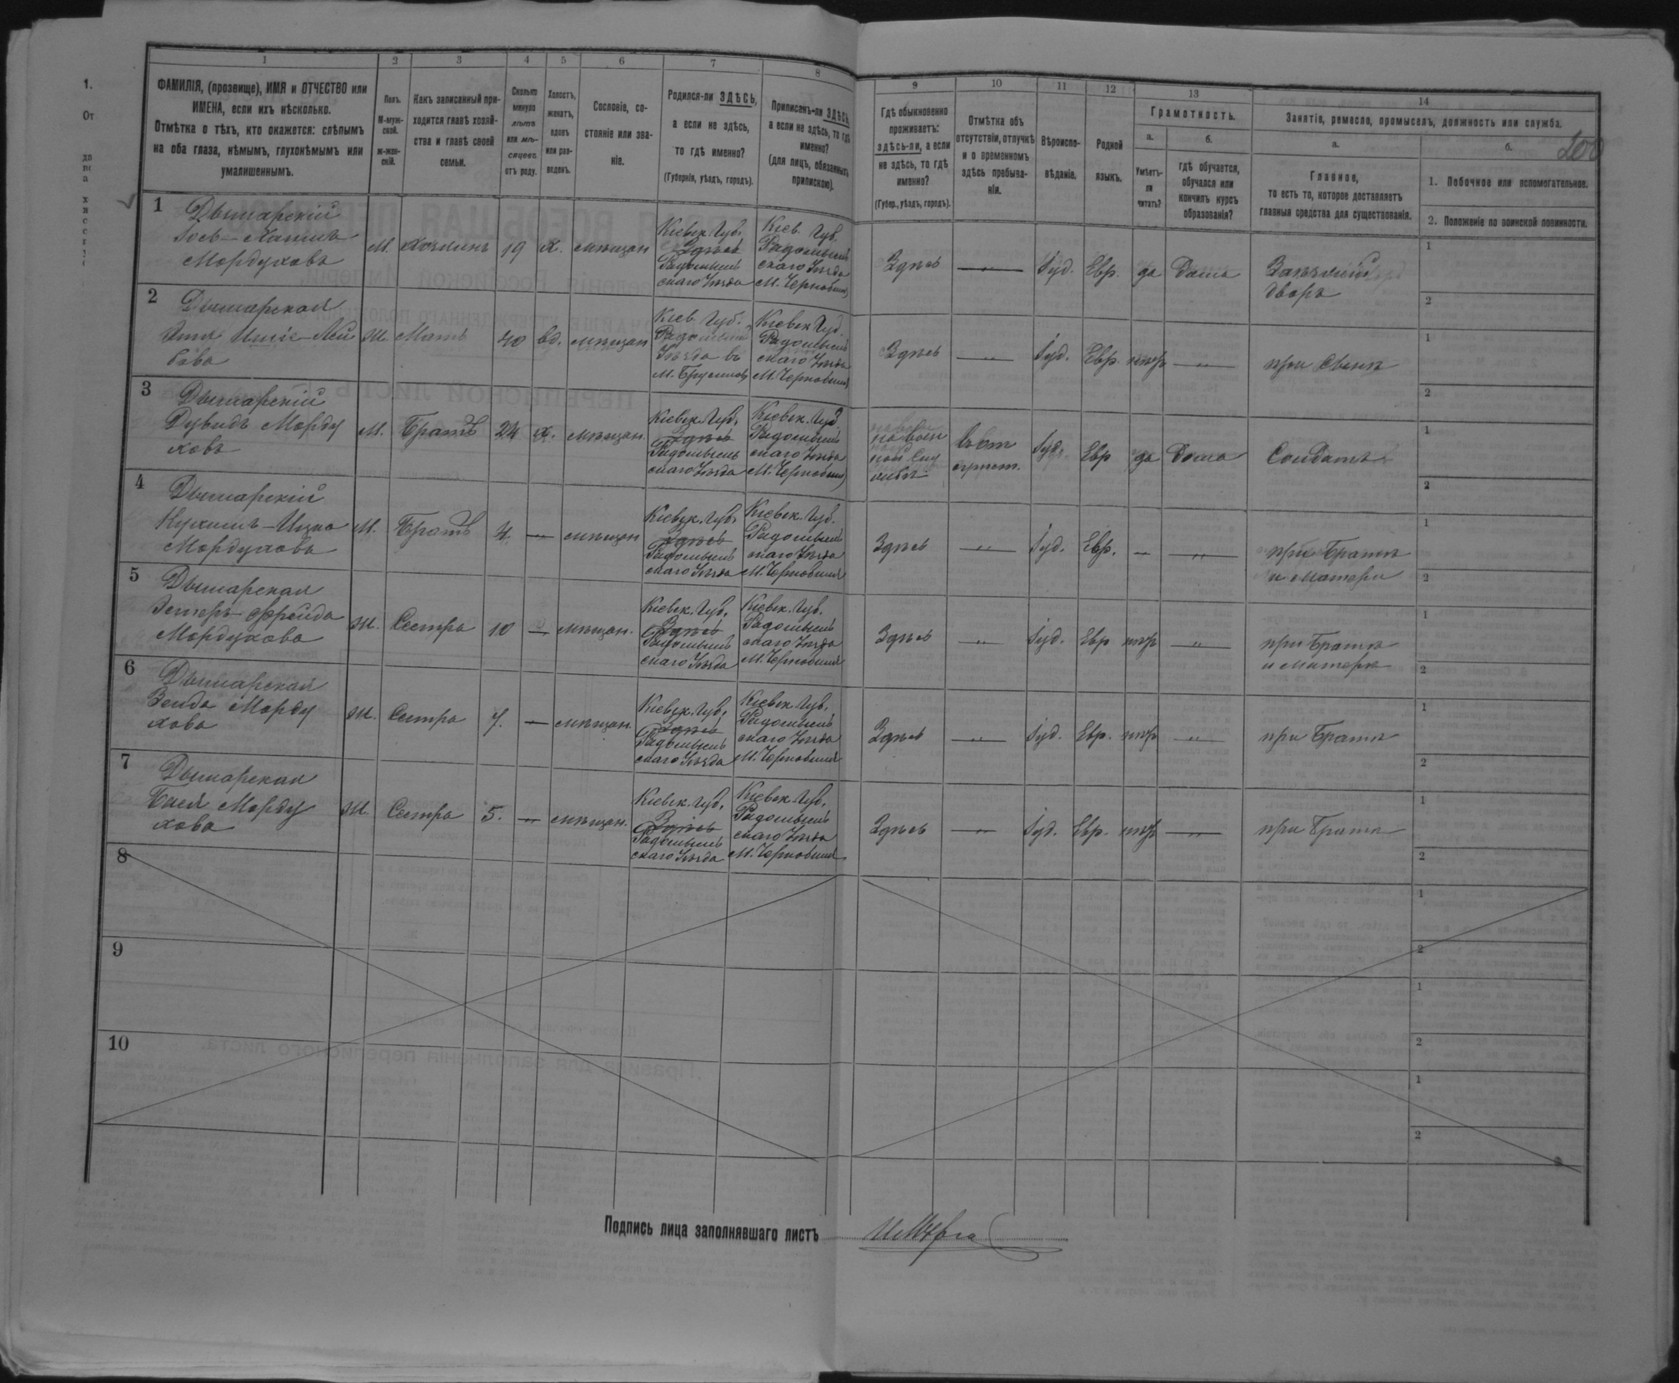 1 2 3 4 5 6 7 8 9 10 11 12 13 14
ФАМИЛІЯ, (прозвище), ИМЯ и ОТЧЕСТВО или
ИМЕНА, если ихъ нѣсколько.
Отмѣтка о тѣхъ, кто окажется: слѣпымъ
на оба глаза, нѣмымъ, глухонѣмымъ или
умалишеннымъ.
Полъ.
М-муж-
ской.
Ж-жен-
скій.
Какъ записанный при-
ходится главѣ хозяй-
ства и главѣ своей
семьи.
Сколько
минуло
лѣтъ
или мѣ-
сяцевъ
отъ роду.
Холостъ,
женатъ,
вдовъ
или раз-
веденъ.
Сословіе, со-
стояніе или зва-
ніе.
Родился-ли ЗДѢСЬ,
а если не здѣсь,
то гдѣ именно?
(Губернія, уѣздъ, городъ).
Приписанъ-ли ЗДѢСЬ,
а если не здѣсь, то гдѣ
именно?
(для лицъ, обязанныхъ
припискою).
Гдѣ обыкновенно
проживаетъ:
здѣсь-ли, а если
не здѣсь, то гдѣ
именно?
(Губер., уѣздъ, городъ).
Отмѣтка объ
отсутствіи, отлучкѣ
и о временномъ
здѣсь пребыва-
ніи.
Вѣроиспо-
вѣданіе.
Родной
языкъ.
Грамотность.
а.
Умѣетъ-
ли
читать?
б.
гдѣ обучается,
обучался или
кончилъ курсъ
образованія?
Занятіе, ремесло, промыселъ, должность или служба.
а.
Главное,
то есть то, которое доставляетъ
главныя средства для существованія.
б.
1. Побочное или вспомогательное.
2. Положеніе по воинской повинности.
200
1
Дымарскій
Мордуховъ
М. Хозяинъ 19 х. мѣщан
Кіевск. Губ.
Здѣсь
Радомысль
скаго Уѣзда
Кіев. Губ.
Радомысль
скаго Уѣзда
М. Чернобыля
Здѣсь Іуд. Евр. да Дома
дворъ
1
2
2
Дымарская
Ж. Мать 40 вд. мѣщан
Кіев. Губ.
Радомысль
Уѣзда въ
М. Брусиловъ
Кіевск Губ.
Радомысль
скаго Уѣзда
М. Чернобыля
Здѣсь " Іуд. Евр. нтъ " при сынѣ
1
2
3
Дымарскій
Дувидъ Морду
ховъ
М. Братъ 24 х. мѣщан.
Кіевск. Губ.
Здѣсь
Радомысль
скаго Уѣзда
Кіевск. Губ
Радомысль
скаго Уѣзда
М. Чернобыля
на воен
ной Слу
жбѣ
Іуд. Евр да Дома Солдатъ
1
2
4
Дымарскій
Мордуховъ
М. Братъ 4. — мѣщан
Кіевск. Губ.
Здѣсь
Радомысль
скаго Уѣзда
Кіевск. Губ.
Радомысль
скаго Уѣзда
М. Чернобыля
Здѣсь " Іуд. Евр. — " при Братѣ
и матери
1
2
5
Дымарская
Эстеръ-Фрейда
Мордухова
Ж. Сестра 10 — мѣщан.
Кіевск. Губ.
Здѣсь
Радомысль
скаго Уѣзда
Кіевск. Губ.
Радомысль
скаго Уѣзда
М. Чернобыля
Здѣсь " Іуд. Евр нтъ " при Братѣ
и матери
1
2
6
Дымарская
Зельда Морду
хова
Ж. Сестра 7. — мѣщан.
Кіевск. Губ.
Здѣсь
Радомысль
скаго Уѣзда
Кіевск. Губ.
Радомысль
скаго Уѣзда
М. Чернобыля
Здѣсь " Іуд. Евр. нтъ " при Братѣ
1
2
7
Дымарская
Бася Морду
хова
Ж. Сестра 5. — мѣщан.
Кіевск. Губ.
Здѣсь
Радомысль
скаго Уѣзда
Кіевск. Губ.
Радомысль
скаго Уѣзда
М. Чернобыля
Здѣсь " Іуд. Евр. нтъ " при Братѣ
1
2
8
1
2
9
1
2
10
1
2
Подпись лица заполнявшаго листъ